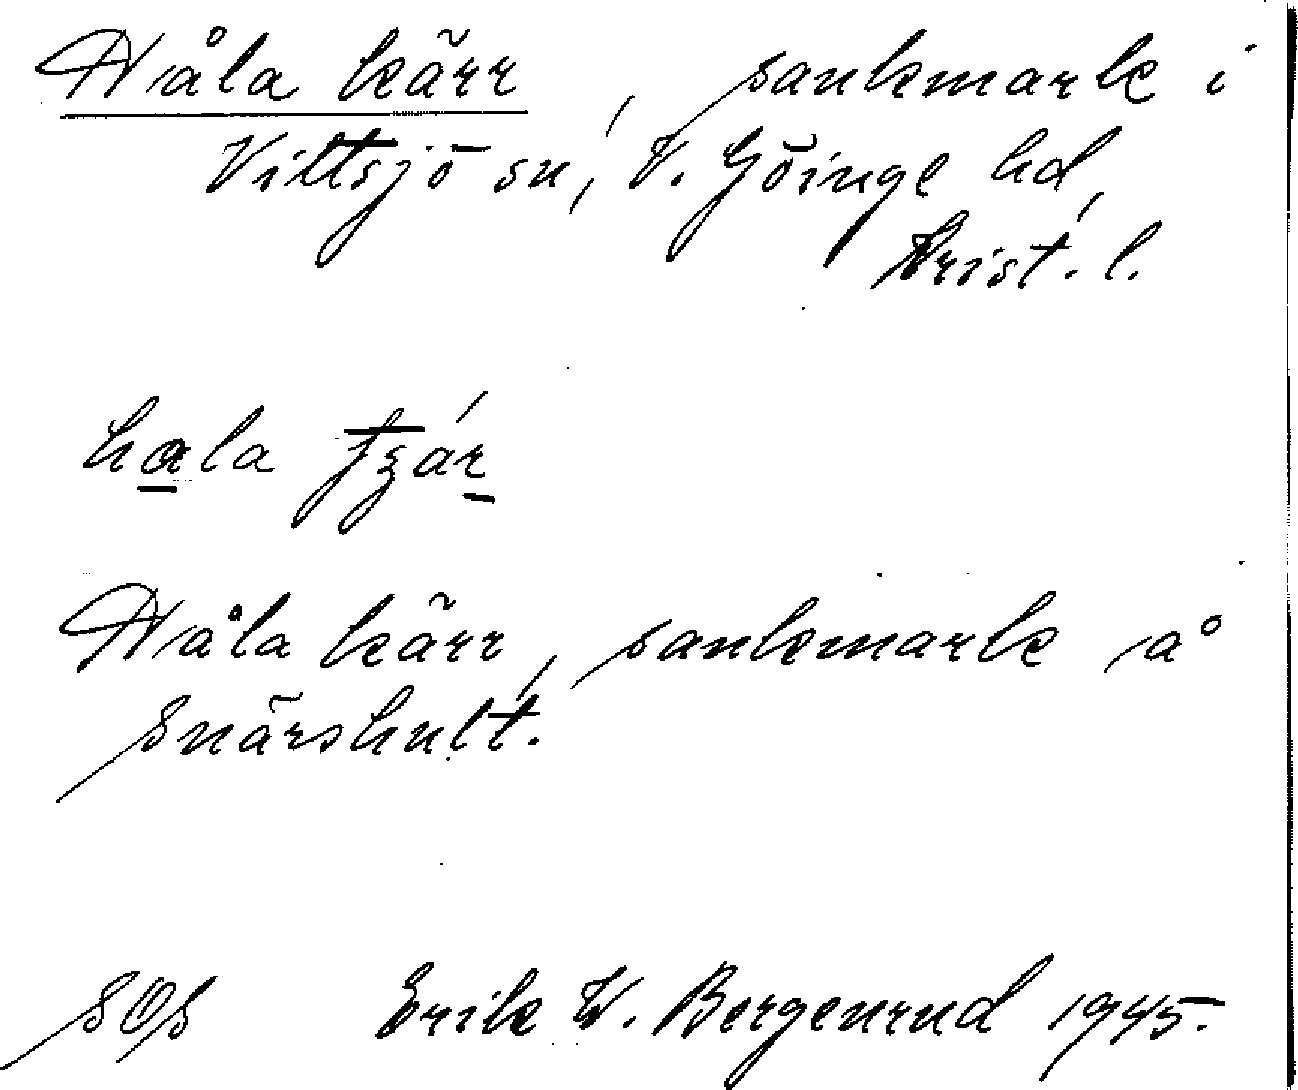 Håla kärr, sankmark i
Vittsjö sn, V. Göinge hd,
Krist. l.
hala tʒár
Håla kärr, sankmark å
Snärshult.
SOS Erik W. Bergenrud 1945.